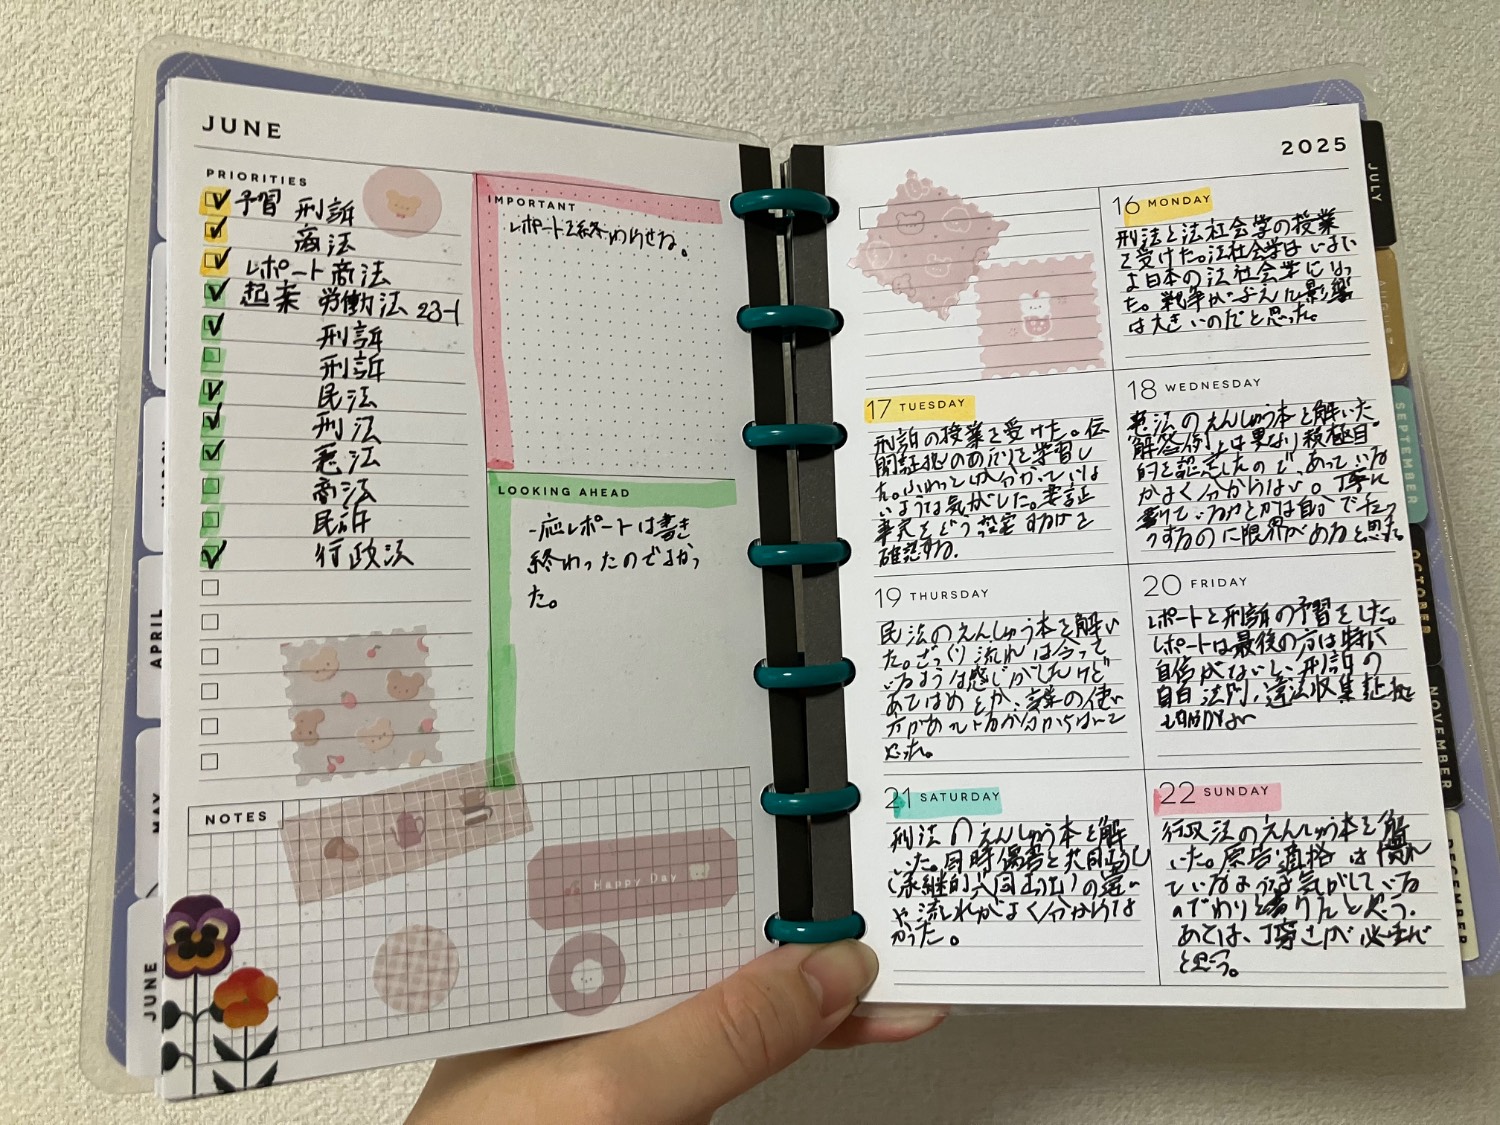 JUNE
PRIORITIES
予習 刑訴
商法
レポート 商法
起案 労働法 23-1
刑訴
刑訴
民法
刑法
憲法
商法
民訴
行政法
IMPORTANT
レポートを終わらせる。
LOOKING AHEAD
一応レポートは書き
終わったのでよかっ
た。
NOTES
Happy Day
APRIL
MAY
JUNE
2025
16 MONDAY
刑法と法社会学の授業
を受けた。法社会学はいよい
よ日本の法社会学になっ
た。戦争が与えた影響
は大きいのだと思った。
17 TUESDAY
刑訴の授業を受けた。伝
聞証拠のあたりを学習し
た。ふわっとしか分かっていな
いような気がした。要証
事実をどう設定するかを
確認する。
18 WEDNESDAY
憲法のえんしゅう本を解いた
解答例とは異なり積極目
的を認定したので、あっている
かよく分からない。丁寧に
書けているかとかは自分でチェッ
クするのに限界があると思った。
19 THURSDAY
民法のえんしゅう本を解い
た。ざっくり流れは合って
いるような感じがしたけど
あてはめとか、言葉の使い
方があっているか分からないと
思った。
20 FRIDAY
レポートと刑訴の予習をした。
レポートは最後の方は特に
自信がないし、刑訴の
自白法則、違法収集証拠
21 SATURDAY
刑法のえんしゅう本を解
いた。同時傷害と共同
(承継的共同)の違い
や流れがよく分からな
かった。
22 SUNDAY
行政法のえんしゅう本を解
いた。原告適格は慣れ
ているような気がしている
のでわりと書けたと思う。
あとは、丁寧さが必要だ
と思う。
JULY
AUGUST
SEPTEMBER
OCTOBER
NOVEMBER
DECEMBER